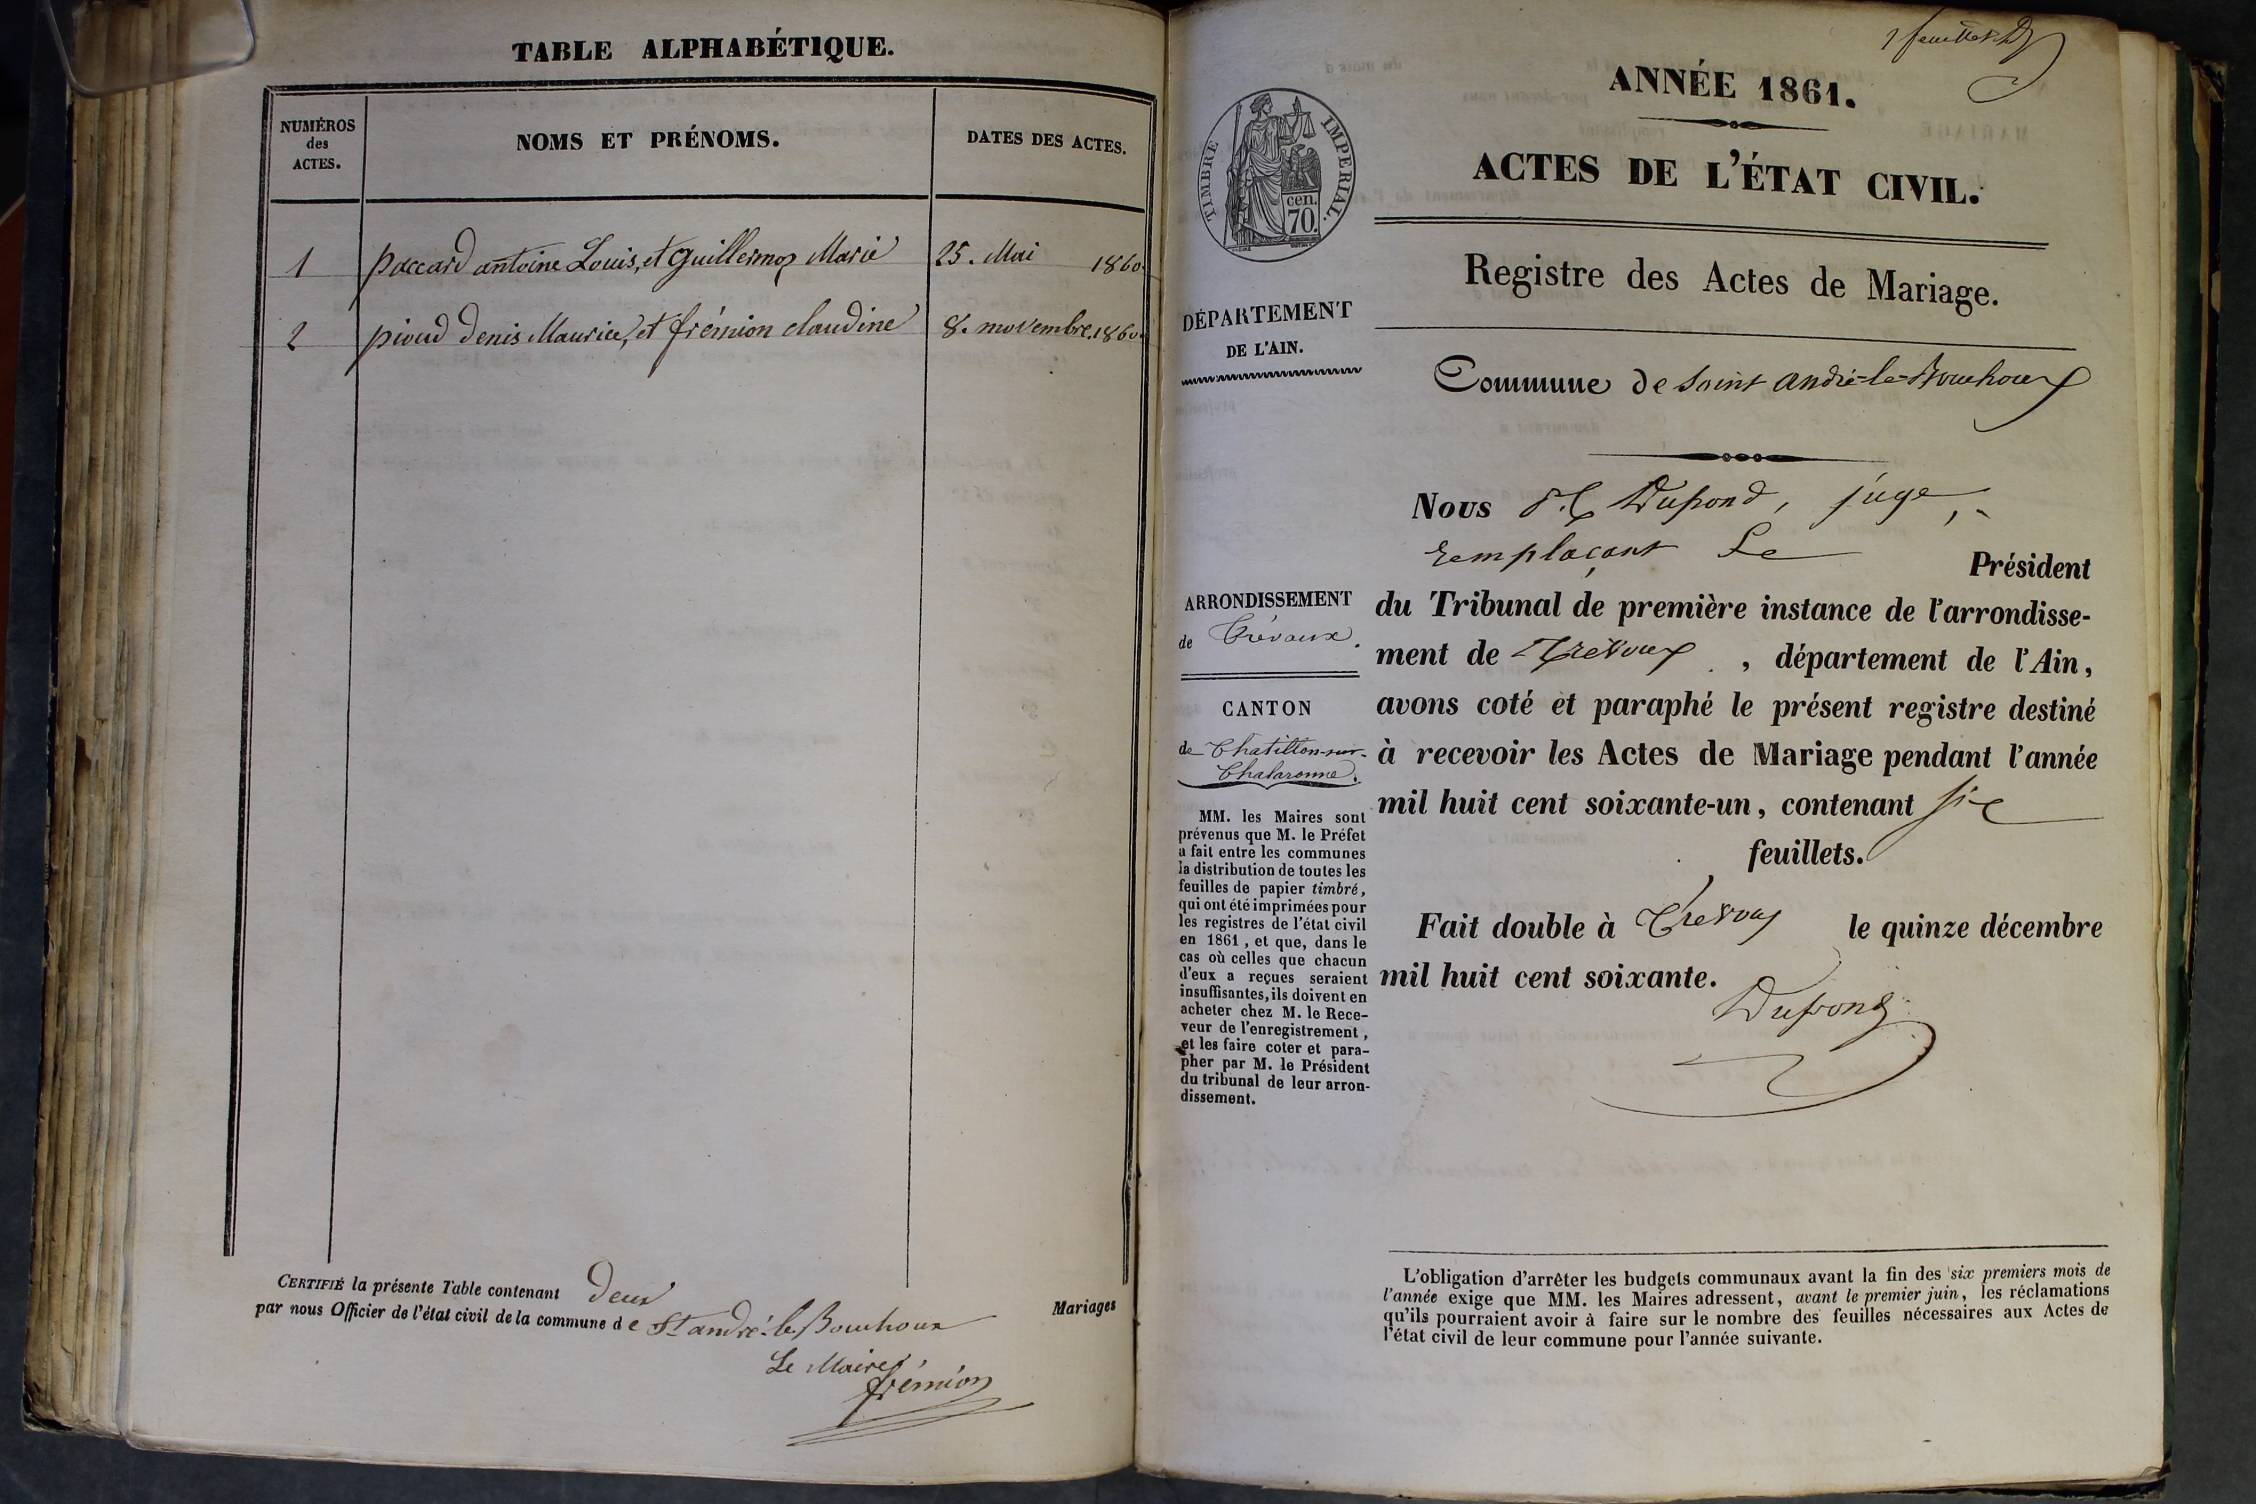 TABLE ALPHABÉTIQUE.
NUMÉROS
des
ACTES.
NOMS ET PRÉNOMS.
DATES DES ACTES.
1 paccard antoine Louis, et Guillermoz Marie 25. Mai 1860.
2 pioud Denis Maurice, et frémion claudine 8. novembre. 1860.
CERTIFIÉ la présente Table contenant Deux Mariages
par nous Officier de l'état civil de la commune de St andré-le-Bouchoux
Le Maire
frémion
1 feuillet
ANNÉE 1861.
ACTES DE L'ÉTAT CIVIL.
TIMBRE IMPÉRIAL.
cen.
70.
Registre des Actes de Mariage.
DÉPARTEMENT
DE L'AIN.
Commune de Saint andré-le-Bouchoux
Nous Dupond, juge,
remplaçant le Président
ARRONDISSEMENT
de Trévoux.
CANTON
de Chatillon-sur-
Chalaronne.
MM. les Maires sont
prévenus que M. le Préfet
a fait entre les communes
la distribution de toutes les
feuilles de papier timbré,
qui ont été imprimées pour
les registres de l'état civil
en 1861, et que, dans le
cas où celles que chacun
d'eux a reçues seraient
insuffisantes, ils doivent en
acheter chez M. le Rece-
veur de l'enregistrement,
et les faire coter et para-
pher par M. le Président
du tribunal de leur arron-
dissement.
du Tribunal de première instance de l'arrondisse-
ment de Trévoux, département de l'Ain,
avons coté et paraphé le présent registre destiné
à recevoir les Actes de Mariage pendant l'année
mil huit cent soixante-un, contenant six
feuillets.
Fait double à Trévoux le quinze décembre
mil huit cent soixante.
Dupond
L'obligation d'arrêter les budgets communaux avant la fin des six premiers mois de
l'année exige que MM. les Maires adressent, avant le premier juin, les réclamations
qu'ils pourraient avoir à faire sur le nombre des feuilles nécessaires aux Actes de
l'état civil de leur commune pour l'année suivante.